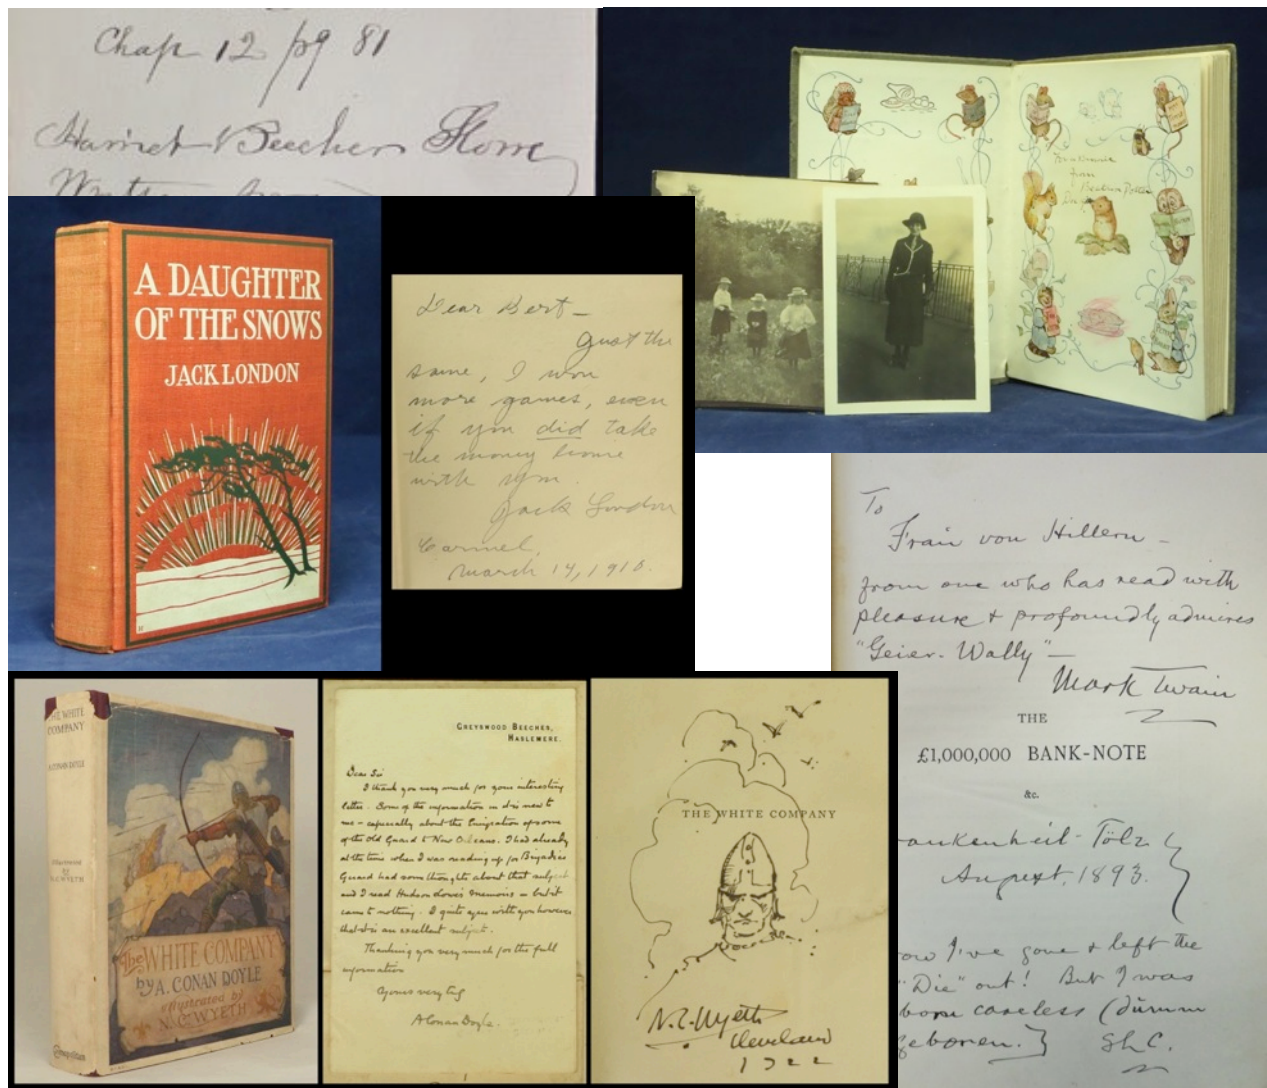 Chap 12 pg 81
Harriet Beecher Stowe
A DAUGHTER
OF THE SNOWS
JACK LONDON
Dear Bert –
Just the
same, I won
more games, even
if you did take
the money home
with you.
Jack London
Carmel,
March 14, 1910.
from
Beatrix Potter
To
Frau von Hillern –
from one who has read with
pleasure & profoundly admires
"Geier-Wally" –
Mark Twain
THE
£1,000,000 BANK-NOTE
&c.
ankenheil-Tölz
August, 1893.
ow I've gone & left the
"Die" out! But I was
born careless (dumm
geboren.)
SLC.
THE WHITE
COMPANY
A. CONAN DOYLE
Illustrated
by
N.C. WYETH
Cosmopolitan
The WHITE COMPANY
by A. CONAN DOYLE
illustrated by
N. C. WYETH
GREYSWOOD BEECHES,
HASLEMERE.
Dear Sir
I thank you very much for your interesting
letter. Some of the information in it is new to
me – especially about the Emigration of some
of the Old Guard to New Orleans. I had already
at the time when I was reading up for Brigadier
Gerard had some thoughts about that subject
and I read Hudson Lowe's Memoirs – but it
came to nothing. I quite agree with you however
that it is an excellent subject.
Thanking you very much for the full
information
Yours very truly
A Conan Doyle.
THE WHITE COMPANY
N.C. Wyeth
Cleveland
1922